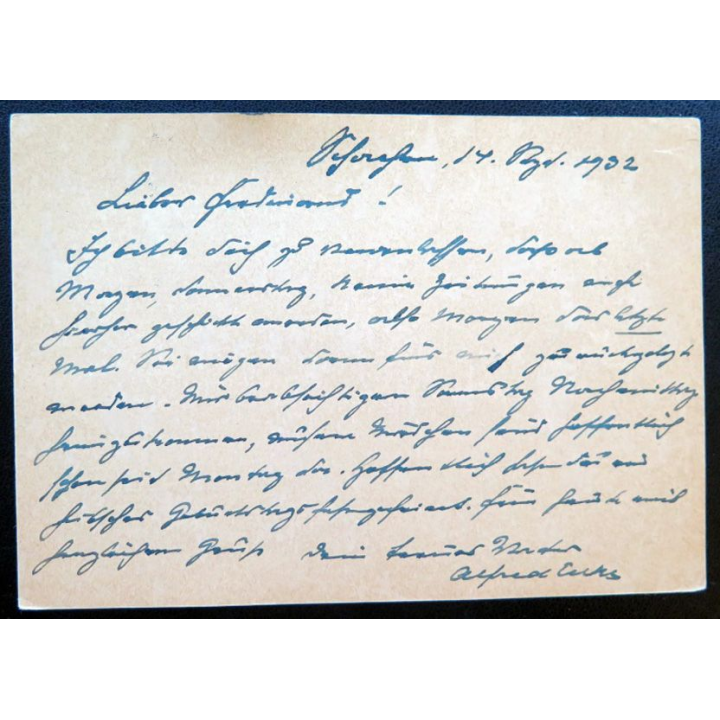 14. Sept. 1932
Lieber Ferdinand!
Ich bitte dich zu veranlassen, dass ab
Morgen, Donnerstag, keine Zeitungen mehr
hierher geschickt werden, also Morgen das letzte
Mal. Sie mögen dann für mich zurückgelegt
werden. Wir beabsichtigen Samstag Nachmittag
heimzukommen, unsere Mädchen sind hoffentlich
schon seit Montag da. Hoffentlich habt ihr ein
hübsches Geburtstagsfest gefeiert. Für heute mit
herzlichem Gruß Dein treuer Vetter
Alfred